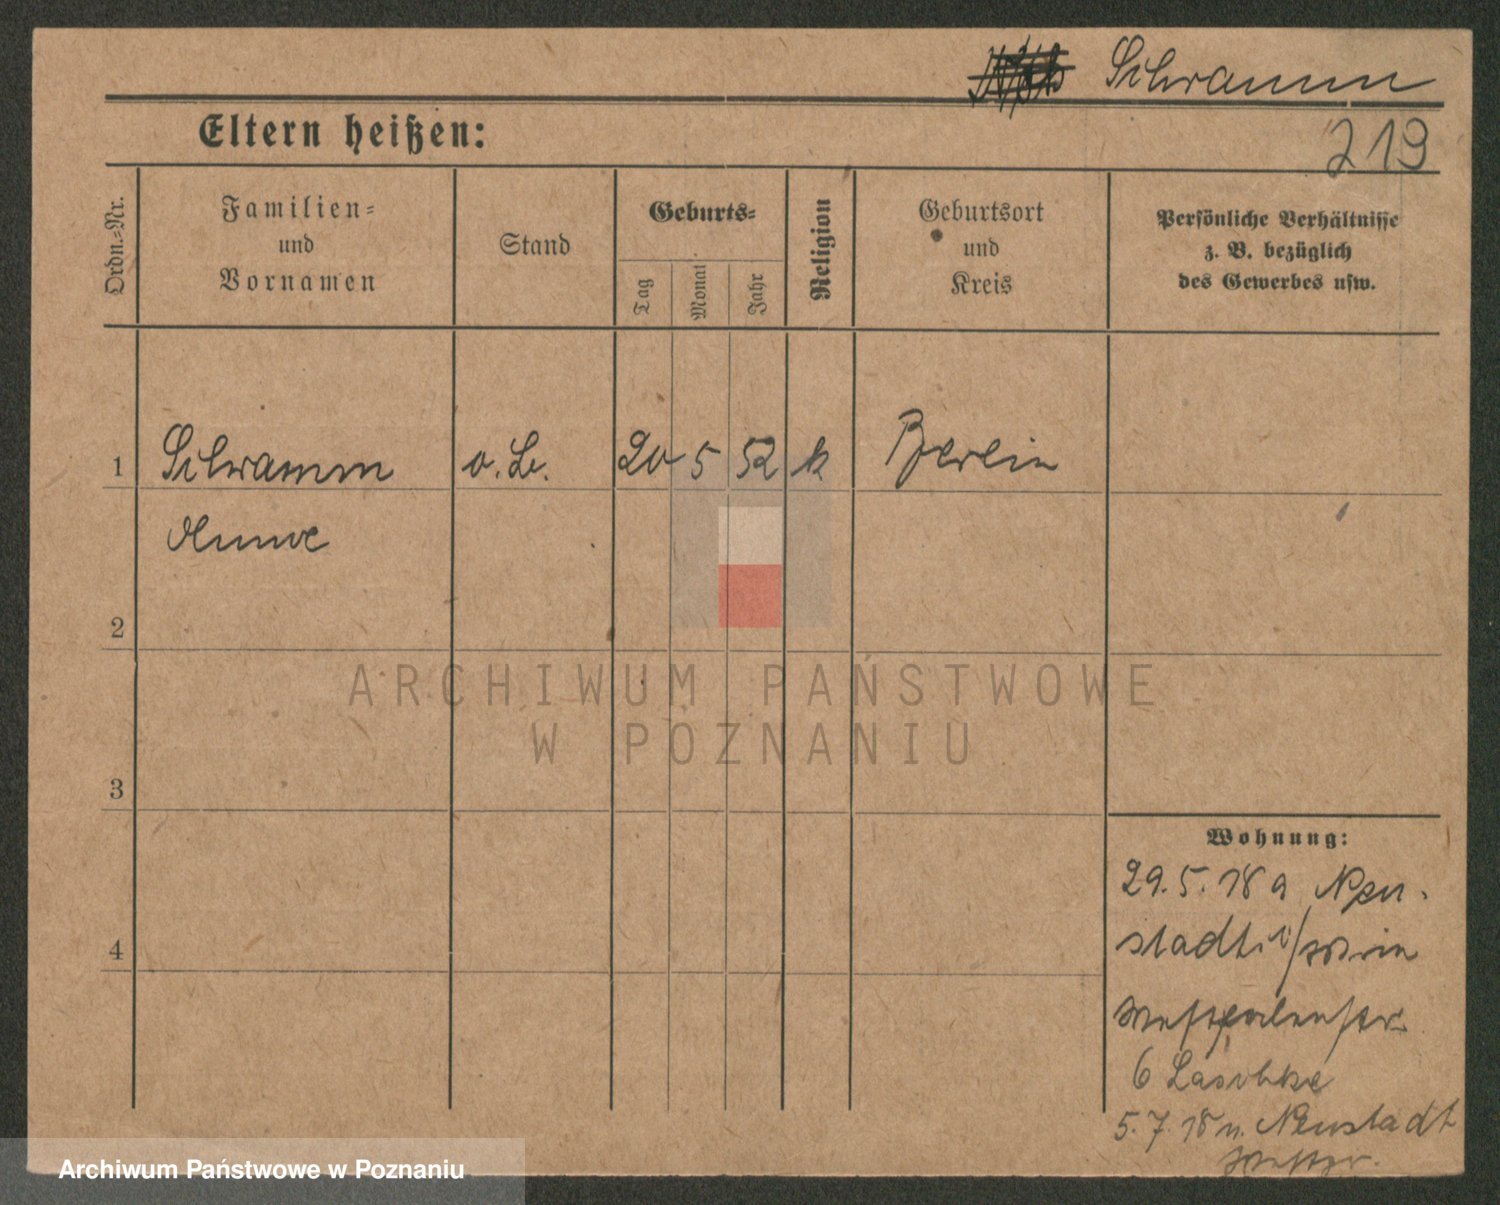 Schramm
Eltern heißen:
219
Ordn.-Nr.
Familien-
und
Vornamen
Stand
Geburts-
Tag
Monat
Jahr
Religion
Geburtsort
und
Kreis
Persönliche Verhältnisse
z. B. bezüglich
des Gewerbes usw.
1 Schramm o. L. 20 5 52 k Berlin
2
3
Wohnung:
29. 5. 18 a Neu-
stadt
4
6 Laschke
5. 7. 18 n. Neustadt
ARCHIWUM PAŃSTWOWE
W POZNANIU
Archiwum Państwowe w Poznaniu